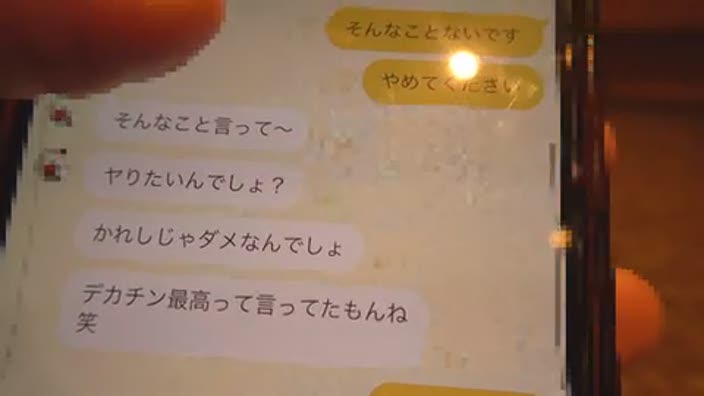 そんなことないです
やめてください
そんなこと言って〜
ヤりたいんでしょ？
かれしじゃダメなんでしょ
デカチン最高って言ってたもんね
笑